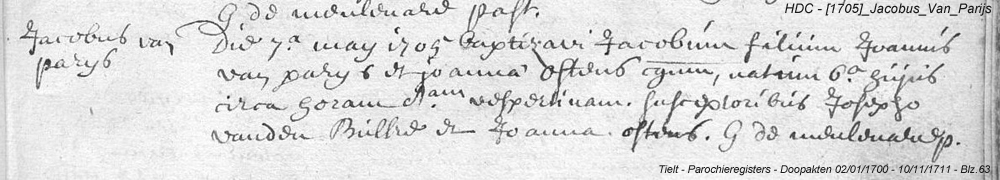 HDC - [1705]_Jacobus_Van_Parijs
G de meulenare past.
Jacobus van
parys
Die 7.a may 1705 baptizavi Jacobum filium Joannis
van parys et joanna ostens cjum, natum 6.a hujus
circa horam 8.am vespertinam. susceptoribus Josepho
vanden Bulke et Joanna ostens. G de meulenare p.
Tielt - Parochieregisters - Doopakten 02/01/1700 - 10/11/1711 - Blz.63